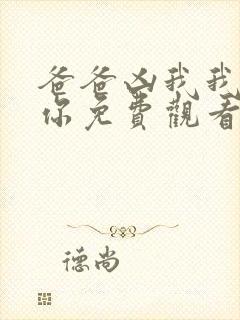 爸爸凶我我
你免費觀看
德尚